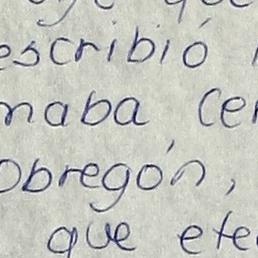 escribió
maba Cer
Obregón,
que ete